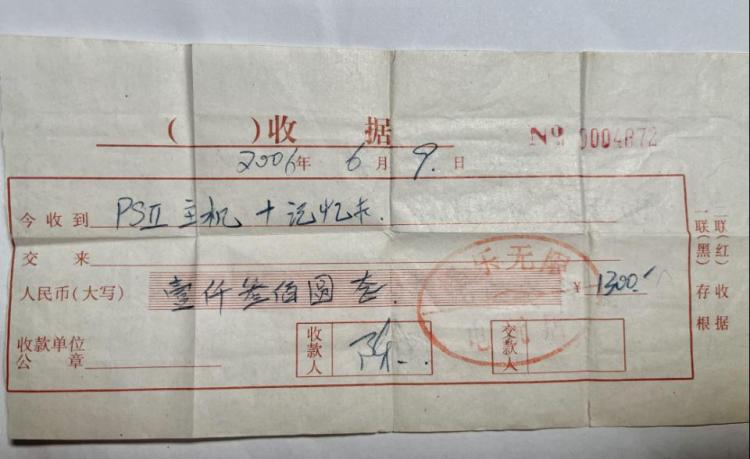 ( )收 据
№ 0004872
2006年 6 月 9 日
今收到 PSII 主机 + 记忆卡.
交 来
人民币(大写) 壹仟叁佰圆 ￥ 1300.
乐无
收款单位
公 章
收款人
交款人
一联(黑)存根
二联(红)收据